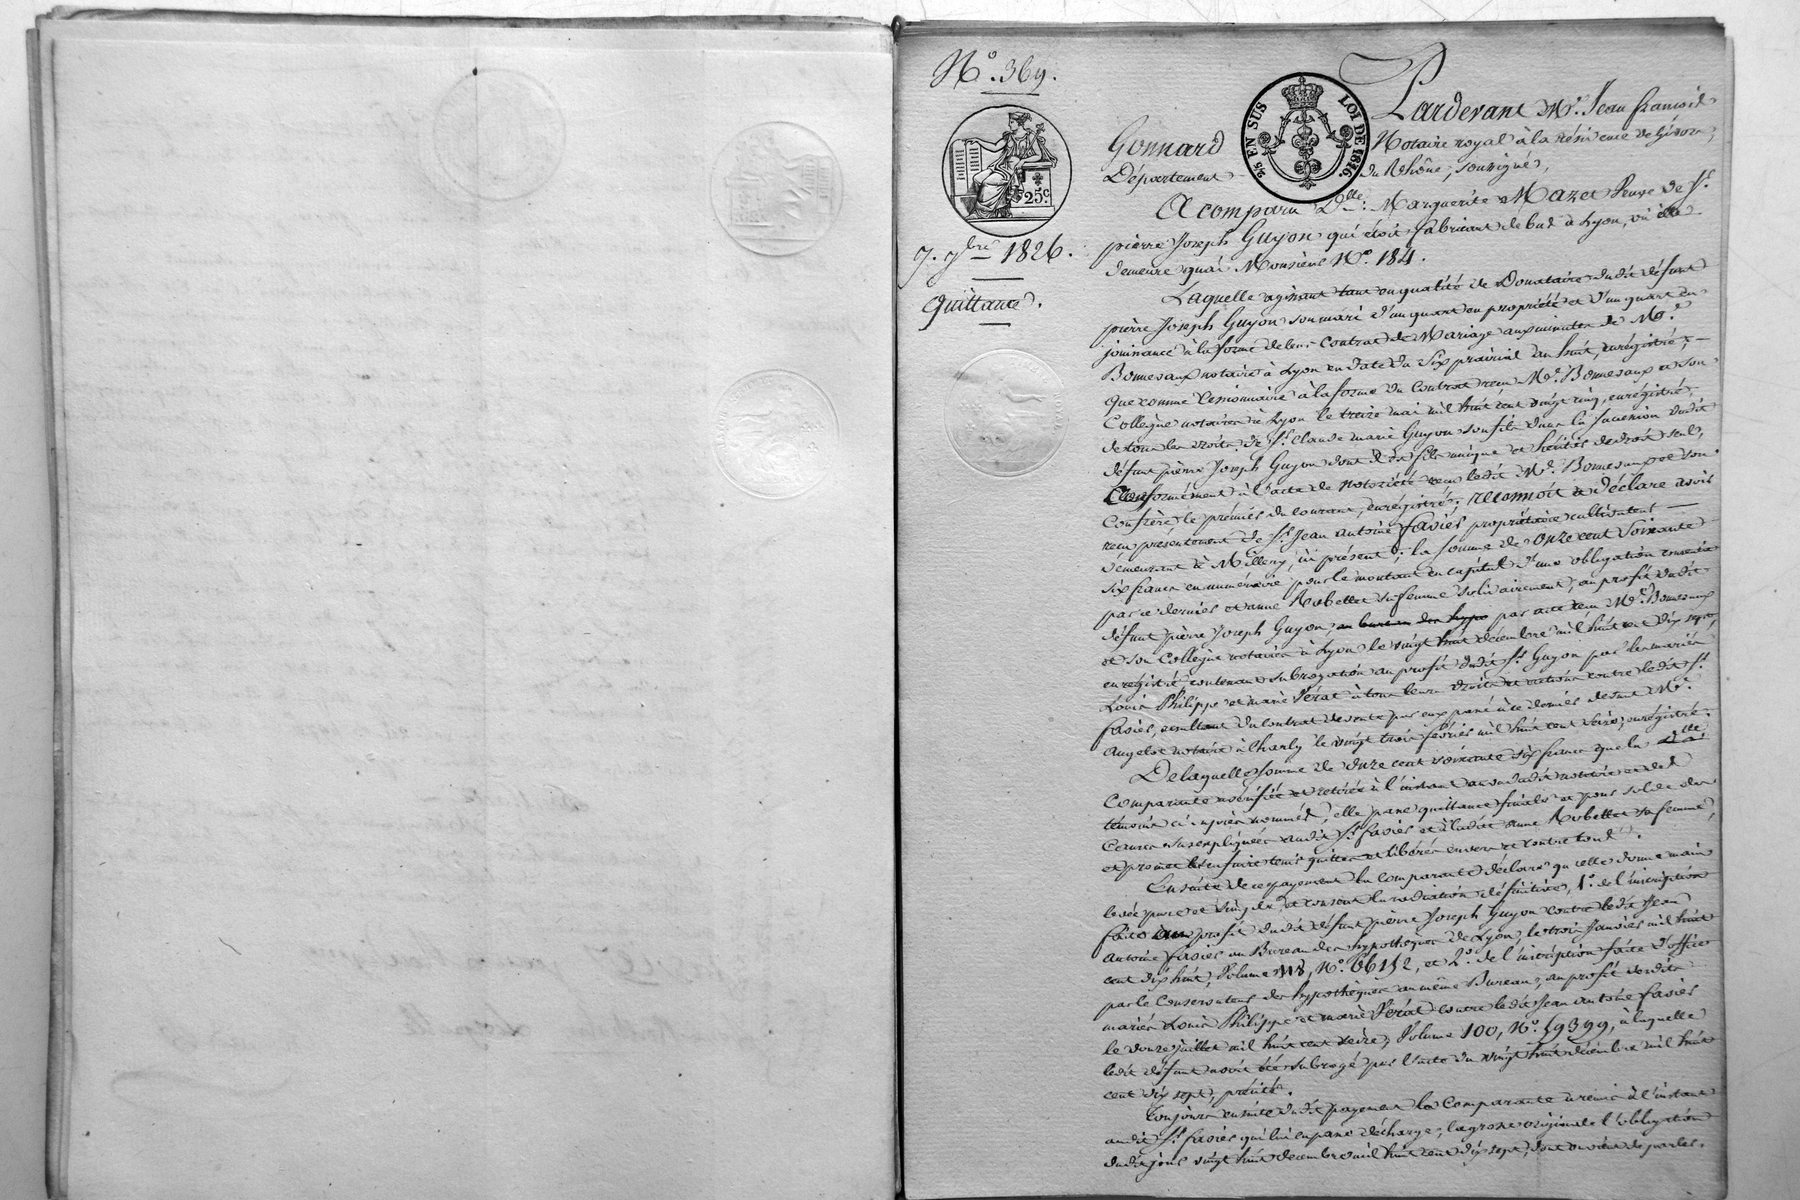 N.° 369.
25 EN SUS
LOI DE 1816.
25c.
7. 7bre 1826.
Quittance.
Pardevant Me. Jean françois
Gonnard Notaire royal à la Résidence de Givors,
Département du Rhône, soussigné,
A comparu Dlle. Marguerite Mazet Veuve de Sr.
pierre Joseph Guyon qui étoit fabricant de bas à Lyon, où elle
demeure quai Monsieur N.° 184.
Laquelle agissant tant en qualité de Donataire dudit défunt
pierre Joseph Guyon son mari d'un quart en propriété et d'un quart en
jouissance à la forme de leur Contrat de Mariage aux minutes de Me.
Bonnevaux notaire à Lyon en date du Six prairial an huit, enrégistré,
que comme Cessionnaire à la forme du Contrat reçu Me. Bonnevaux et son
Collègue notaires à Lyon le treize mai mil huit cent vingt cinq, enrégistré,
de tous les droits de Sr. Claude marie Guyon son fils dans la succession dudit
défunt pierre Joseph Guyon dont il est fils unique et héritier de droit seul,
Conformément à l'acte de Notoriété reçu ledit Me. Bonnevaux et son
Confrère le premier du courant, enrégistré; reconnoit et déclare avoir
reçu présentement de Sr. Jean antoine favier propriétaire cultivateur
demeurant à Millery, ici présent, la somme de onze cent soixante
six francs en numéraire pour le montant en capital d'une obligation consentie
par ce dernier et anne Robellet sa femme solidairement, au profit dudit
défunt pierre Joseph Guyon, au bureau des hypo par acte reçu Me. Bonnevaux
et son Collègue notaires à Lyon le vingt huit décembre mil huit cent dix sept,
enrégistré contenant subrogation au profit dudit Sr. Guyon par les mariés
Louis Philippe et marie Pérat à tous leurs droits et actions contre ledit Sr.
favier, résultant du contrat de vente par eux passé à ce dernier devant Me.
Angelot notaire à Charly le vingt trois février mil huit cent seize, enrégistré.
De laquelle somme de onze cent soixante six francs que la Dlle.
Comparante a vérifiée et retirée à l'instant au vu dudit notaire et des
témoins ci après nommés, elle passe quittance finale et pour solde des
causes susexpliquées audit Sr. favier et à ladite anne Robellet sa femme,
et promet les en faire tenir quittes et libérés envers et contre tous.
Ensuite de ce payement la comparante déclare qu'elle donne main
levée pure et simple, et consent la radiation définitive, 1.° de l'inscription
faite au profit dudit défunt pierre Joseph Guyon contre ledit Jean
Antoine favier au Bureau des hypothèques de Lyon, le trois Janvier mil huit
cent dix huit, Volume 118, N.° 66152, et 2.° de l'inscription faite d'office
par le Conservateur des hypothèques au même Bureau, au profit desdits
mariés Louis Philippe et marie Pérat contre ledit Jean antoine favier
le douze juillet mil huit cent seize, Volume 100, N.° 59399, à laquelle
ledit défunt avoit été subrogé par l'acte du vingt huit décembre mil huit
cent dix sept, précité.
Toujours ensuite dudit payement la Comparante a remis à l'instant
audit Sr. favier qui lui en passe décharge, la grosse originale de l'obligation
dudit jour vingt huit décembre mil huit cent dix sept, dont on vient de parler.